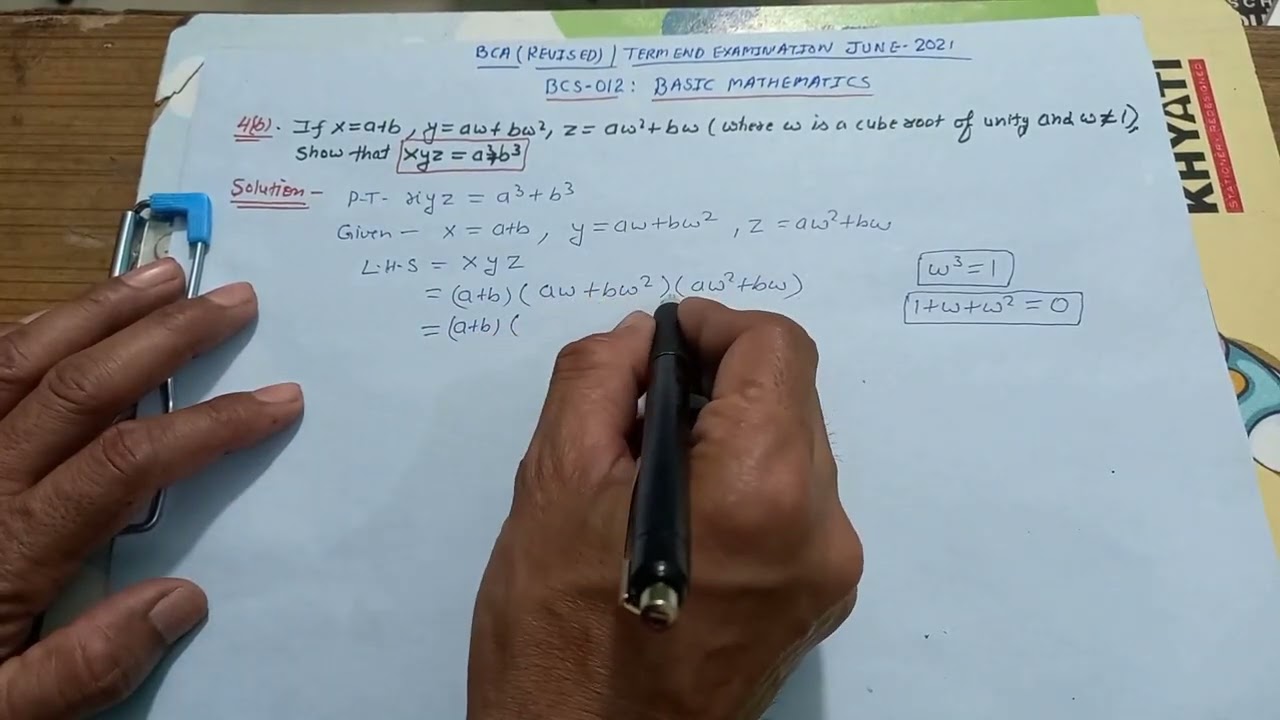 BCA (REVISED) / TERM END EXAMINATION JUNE-2021
BCS-012: BASIC MATHEMATICS
4(b). If x=a+b, y=aω+bω², z=aω²+bω (where ω is a cube root of unity and ω≠1),
Show that xyz = a³+b³
Solution-
P.T- xyz = a³+b³
Given- x = a+b, y=aω+bω², z=aω²+bω
L.H.S = xyz
= (a+b) (aω+bω²)(aω²+bω)
= (a+b) (
ω³=1
1+ω+ω² = 0
KHYATI
STATIONERY REDESIGNED